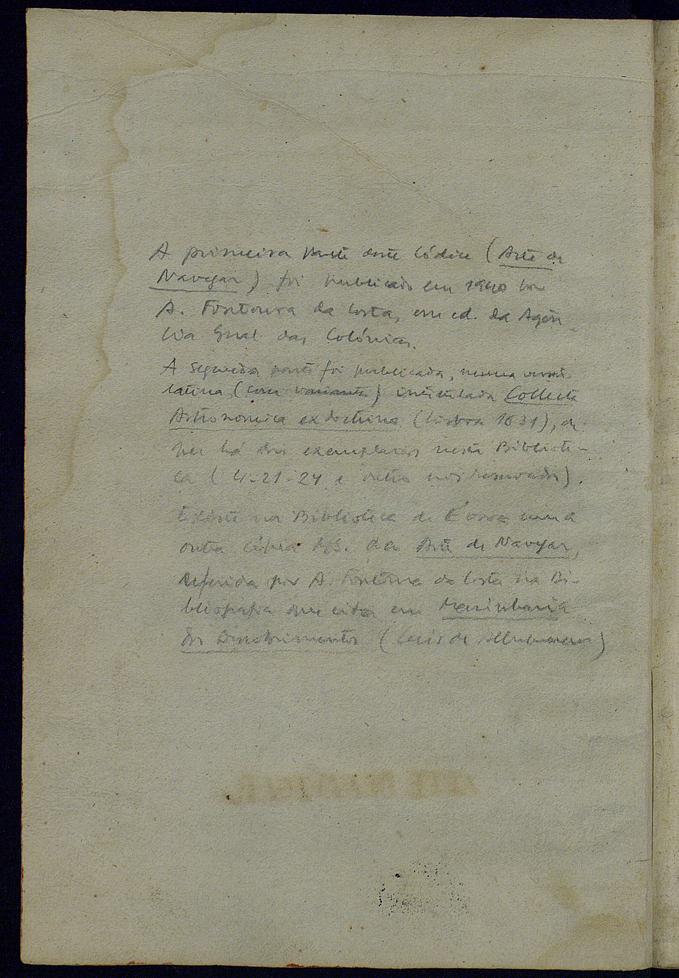 A primeira parte deste Códice (Arte de
Navegar) foi publicado em 1940 por
A. Fontoura da Costa, em ed. da Agên-
cia Geral das Colónias.
A segunda parte foi publicada, numa versão
latina (com variante) intitulada Collecta
Astronomica ex doctrina (Lisboa 1631), de
que há dois exemplares nesta Bibliote-
ca (4-21-24 e outro nos reservados).
Existe na Biblioteca de Évora uma
outra cópia ms. da Arte de Navegar,
referida por A. Fontoura da Costa na Bi-
bliografia que cita em Marinharia
dos Descobrimentos (Luís de Albuquerque)
ARTE DE NAVEGAR